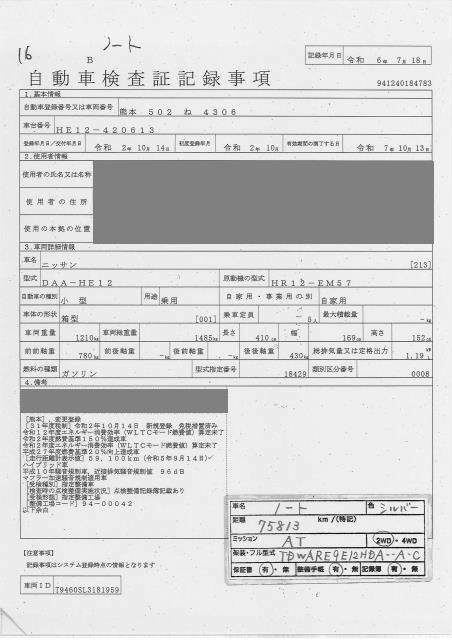 16
ノート
B
記録年月日 令和 6年 7月18日
自動車検査証記録事項
941240184783
1.基本情報
自動車登録番号又は車両番号 熊本 502 ね 4306
車台番号 HE12-420613
登録年月日/交付年月日 令和 2年10月14日 初度登録年月 令和 2年10月 有効期間の満了する日 令和 7年10月13日
2.使用者情報
使用者の氏名又は名称
使用者の住所
使用の本拠の位置
3.車両詳細情報
車名 ニッサン [213]
型式 DAA-HE12 原動機の型式 HR12-EM57
自動車の種別 小型 用途 乗用 自家用・事業用の別 自家用
車体の形状 箱型 [001] 乗車定員 5人 最大積載量 -kg
車両重量 1210kg 車両総重量 1485kg 長さ 410cm 幅 169cm 高さ 152cm
前前軸重 780kg 前後軸重 -kg 後前軸重 -kg 後後軸重 430kg 総排気量又は定格出力 1.19L
燃料の種類 ガソリン 型式指定番号 18429 類別区分番号 0008
4.備考
[熊本],変更登録
[31年度税制]令和2年10月14日 新規登録 免税措置済み
令和12年度エネルギー消費効率(WLTCモード燃費値)算定未了
令和2年度燃費基準150%達成車
令和2年度エネルギー消費効率(WLTCモード燃費値)算定未了
平成27年度燃費基準20%向上達成車
[走行距離計表示値]59,100km(令和5年9月14日)
ハイブリッド車
平成10年騒音規制車,近接排気騒音規制値 96dB
マフラー加速騒音規制適用車
[受検種別]指定整備車
[検査時の点検整備実施状況]点検整備記録簿記載あり
[受検形態]指定整備工場
[整備工場コード]94-00042
以下余白
車名 ノート 色 シルバー
距離 75813 km/(特記)
ミッション AT 2WD・4WD
架装・フル型式 TDWARE9E12HDA--A-C
保証書 有・無 整備手帳 有・無 記録簿 有・無
【注意事項】
記録事項はシステム登録時点の情報となります
車両ID T9460SL3181959